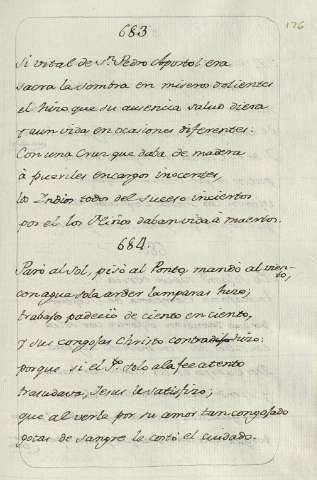 683
176
Si vital de Sn. Pedro Apostol era
sacra la sombra en miseros dolientes
el hizo que su ausencia salud diera
y aun vida en ocasiones diferentes:
Con una Cruz que daba de madera
à pueriles encargos inocentes,
los Indios todos del suceso inciertos
por el los Niños daban vida à muertos.
684.
Parò al Sol, pisò al Ponto, mandò al vien-
to,
con agua sola arder lamparas hizo;
trabajos padeciò de ciento en ciento,
y sus congojas Christo hizo:
porque si el Pe. solo a la fee atento
trasudava, Jesus le satisfizo;
que al verle por su amor tan congojado
gotas de sangre le costò el cuidado.